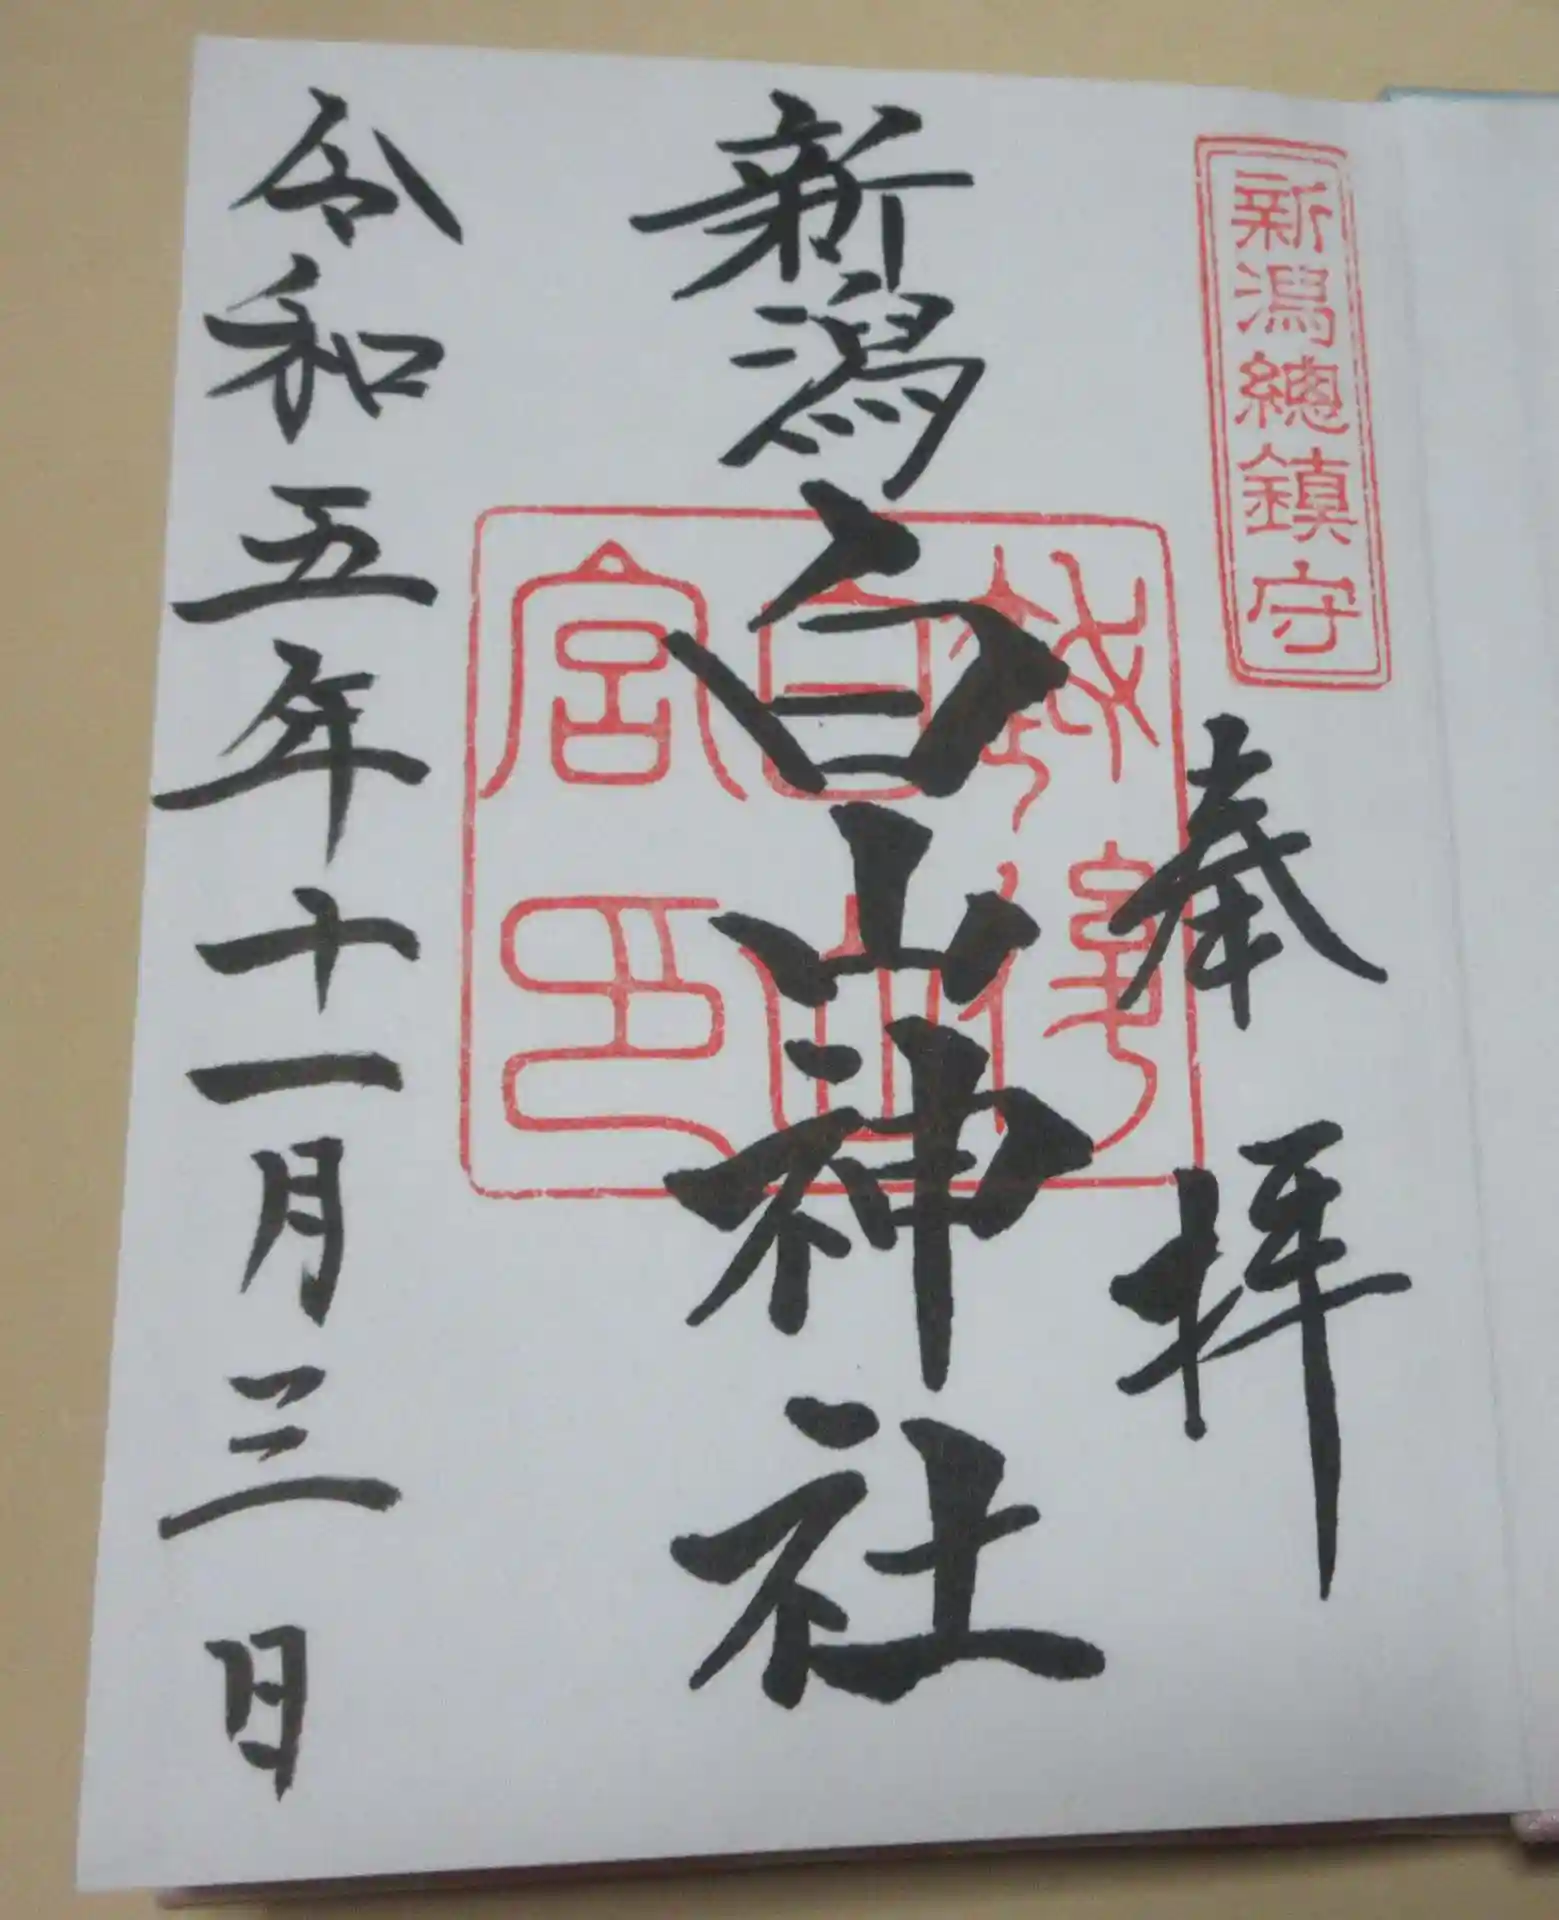 新潟總鎮守
奉拝
新潟白山神社
越後
白山
宮印
令和五年十一月三日